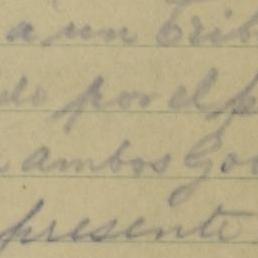 a un Trib
do por el p
ambos Go
presente